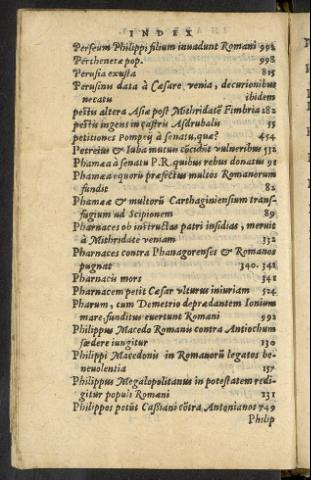 INDEX
Perseum Philippi filium inuadunt Romani 992
Perthenetæ pop. 998
Perusia exusta 815
Perusinis data à Cæsare, venia, decurionibus
necatis ibidem
pestis altera Asiæ post Mithridatē Fimbria 182
pestis ingens in castris Asdrubalis 55
petitiones Pompeij à senatu, quæ? 454
Petreius & Iuba mutuis cōcidūt vulneribus 532
Phamæa à senatu P.R. quibus rebus donatus 91
Phamæa equorū præfectus multos Romanorum
fundit 82
Phamææ & multorū Carthaginiensium trans-
fugium ad Scipionem 89
Pharnaces ob instructas patri insidias, meruit
à Mithridate veniam 332
Pharnaces contra Phanagorenses & Romanos
pugnat 340. 341
Pharnacis mors 341
Pharnacem petit Cæsar vlturus iniuriam 524
Pharum, cum Demetrio deprædantem Ionium
mare, funditus euertunt Romani 992
Philippus Macedo Romanis contra Antiochum
fœdere iungitur 130
Philippi Macedonis in Romanorū legatos be-
neuolentia 157
Philippus Megalopolitanus in potestatem redi-
gitur populi Romani 131
Philippos petūt Cassiani cōtra Antonianos 749
Philip